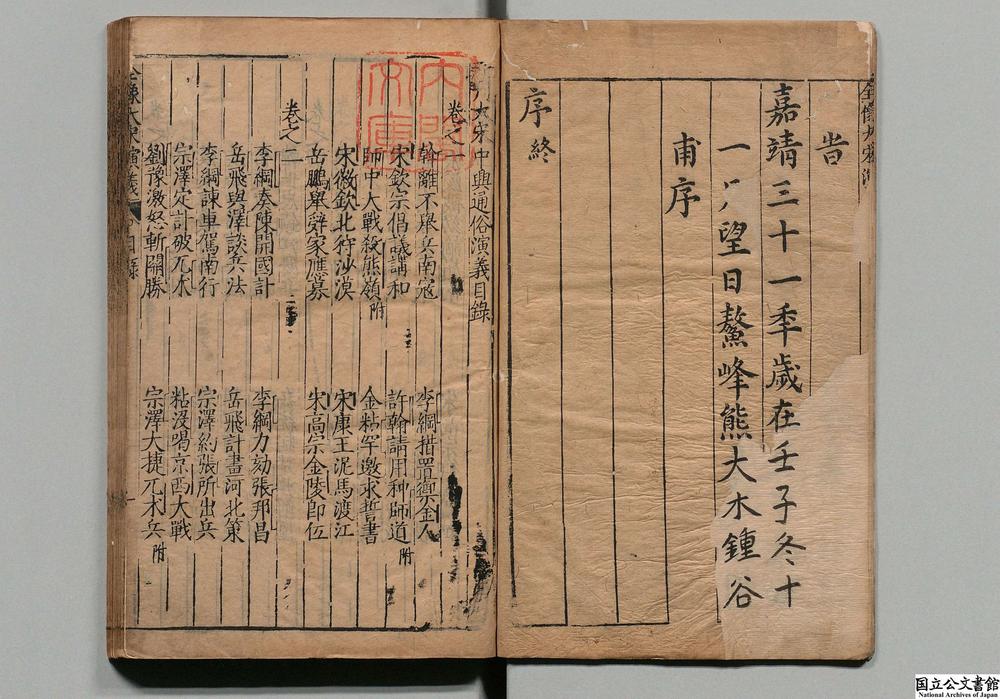 全像大宋演
旹
嘉靖三十一秊歲在壬子冬十
一月望日鰲峰熊大木鍾谷
甫序
序終
大宋中興通俗演義目錄
卷之一
斡離不舉兵南寇 李綱措置禦金人
宋欽宗倡議講和 許翰請用种師道
師中大戰殺熊嶺附 金粘罕邀求誓書附
宋徽欽北狩沙漠 宋康王泥馬渡江
岳鵬舉辭家應募 宋高宗金陵即位
卷之二
李綱奏陳開國計 李綱力劾張邦昌
岳飛與澤談兵法 岳飛計畫河北策
李綱諫車駕南行 宗澤約張所出兵
宗澤定計破兀朮 粘沒喝京西大戰
劉豫激怒斬關勝 宗澤大捷兀朮兵附
全像大宋演義 目錄
內閣
文庫
国立公文書館
National Archives of Japan